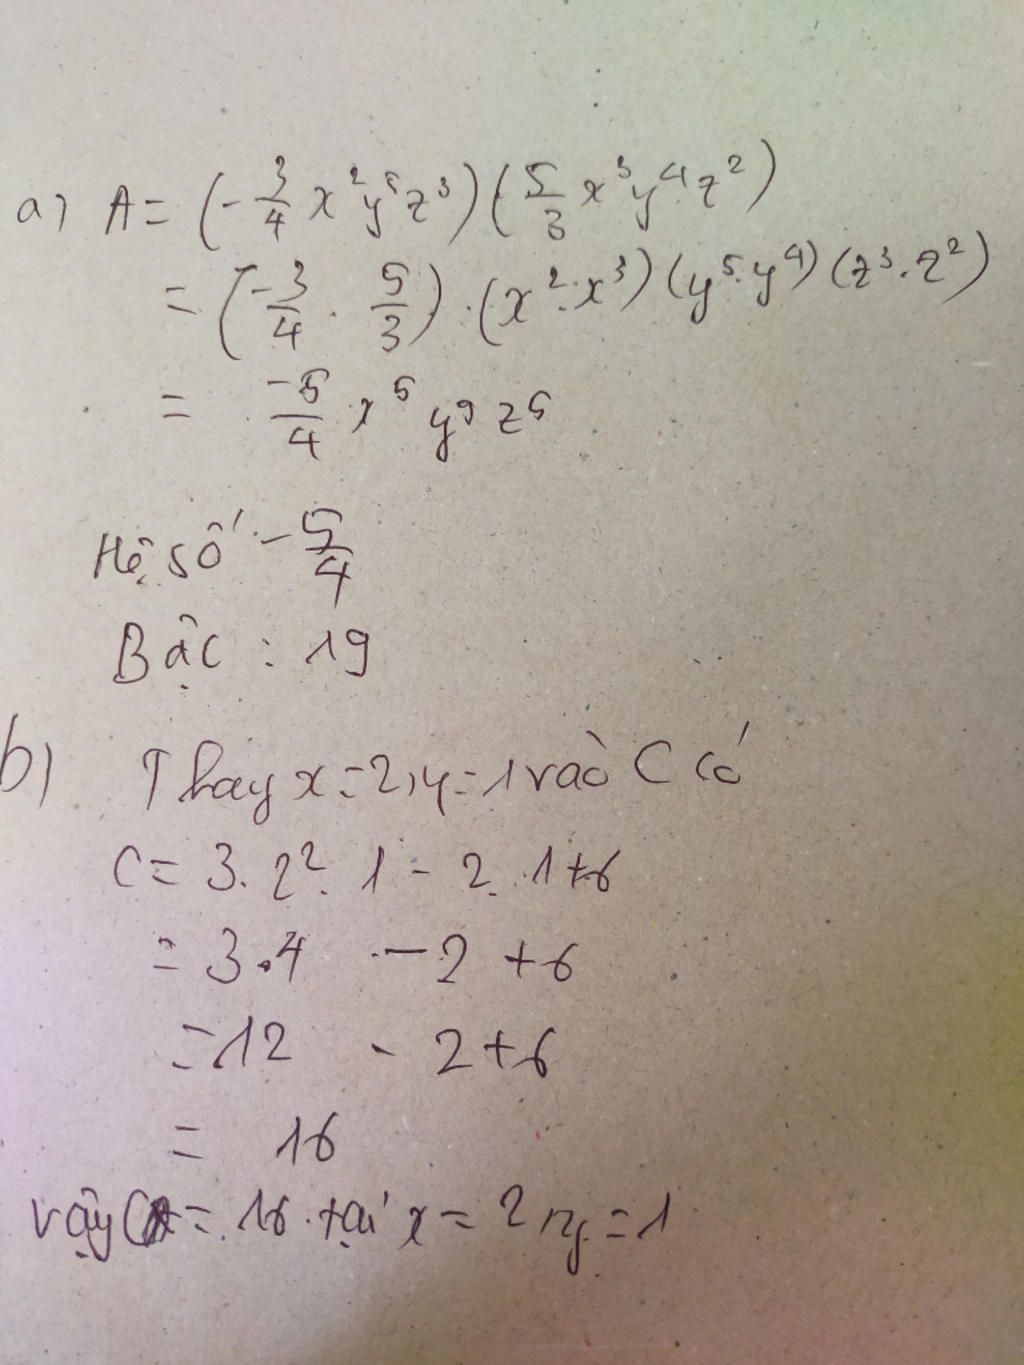 a) A = (-3/4 x²y⁵z³)(5/3 x³y⁴z²)
= (-3/4 . 5/3) . (x² . x³)(y⁵ . y⁴)(z³ . z²)
= -5/4 x⁵ y⁹ z⁵
Hệ số -5/4
Bậc : 19
b) Thay x=2, y=1 vào C có
C = 3. 2². 1 - 2. 1+6
= 3.4 - 2 + 6
= 12 - 2+6
= 16
Vậy C = 16 tại x = 2, y = 1